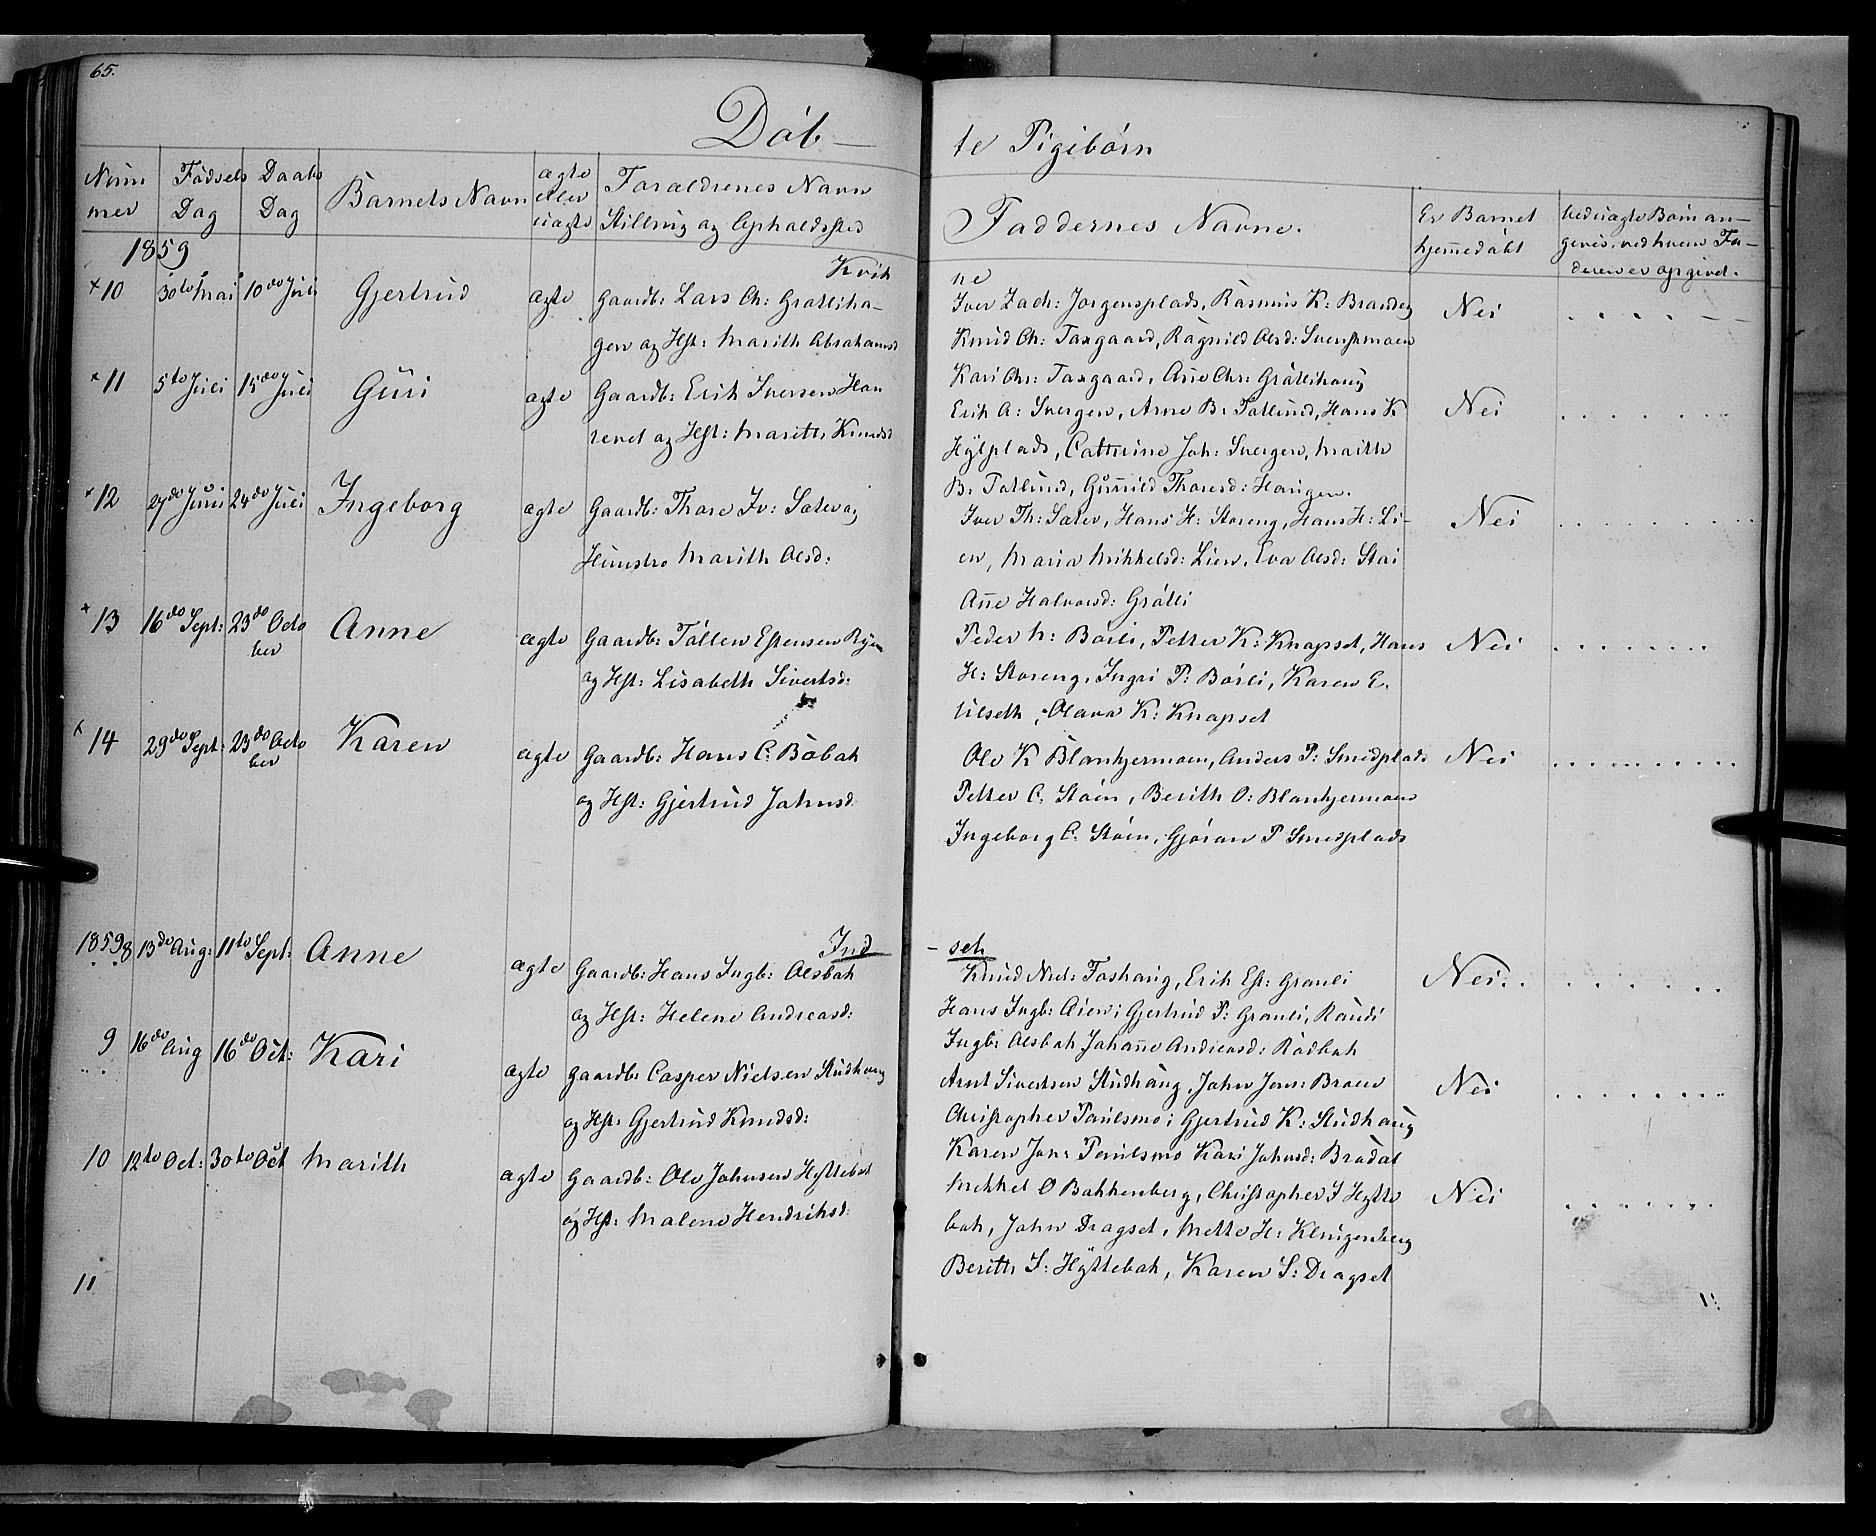 65.
Döb— te Pigebörn
Num mer
Födsels Dag
Daabs Dag
Barnets Navn
ægte eller uægte
Forældrenes Navn Stilling og Opholdssted
Faddernes Navne.
Er Barnet hjemmedöbt
ved uægte Börn angives, ved hvem Faderen er opgivet.
1859
Kvik ne
+10 30te Mai 10de Juli Gjertrud ægte Gaardb: Lars Ch: Grøtliha-
gen og Hst: Marith Abrahamsd
Iver Zach: Jorgensplads, Rasmus K: Brandeg
Knud Ch: Taxgaard, Ragnild Olsd:
Kari Chr: Taxgaard, Ane Chr: Grötlihaug
Nei
+11 5te Juli 15de Juli Guri ægte Gaardb: Erik Iversen Hau
og Hst: Marith Knudsd
Erik A: Svergen, Arne B: Tollund, Hans K
Hylplads, Cathrine Joh: Svergen, Marith
B: Tollund, Gunild Thoresd: Haugen.
Nei
+12 27de Juni 24de Juli Ingeborg ægte Gaardb: Thore Iv: Sæter og
Huustro Marith Olsd:
Iver Th: Sæter, Hans H: Storeng, Hans H: Li-
en, Maria Mikkelsd: Lien, Eva Olsd: Stai
Ane Halvorsd: Grötli
Nei
+13 16de Sept: 23de Octo
ber Anne ægte Gaardb: Töllev Estensen Ryen
og Hst: Lisabeth Sivertsd:
Peder h: Börli, Petter K: Knapset, Hans
H: Storeng, Ingri P: Börli, Karen E.
Lilseth, Olava K: Knapset
Nei
+14 29de Sept: 23de Octo
ber Karen ægte Gaardb: Hans C: Böbak
og Hst: Gjertrud Johnsd
Ole K Blankjermoen, Anders P: Smedplads
Petter C: Stöen, Berith O: Blankjermoen
Ingeborg C. Stöen, Gjöran P Smedplads
Nei
Ind- set
1859 8 13de Aug: 11te Sept: Anne ægte Gaardb: Hans Ingb: Olsbak
og Hst: Helene Andreasd:
Knud Niel: Toshaug, Erik Est: Granli
Hans Ingb: Gjertrud P: Granli, Randi
Ingb: Olsbak Johanne Andreasd: Rödbak
Nei.
9 16de Aug 16de Oct: Kari ægte Gaardb: Casper Nielsen Studhaug
og Hst: Gjertrud Knudsd:
Arnt Sivertsen Studhaug, John Jon: Broen
Christopher Paulsmo; Gjertrud K: Studhaug
Karen Jon: Paulsmo Kari Johnsd: Brödal
Nei
10 12te Oct: 30te Oct Marith ægte Gaardb: Ole Johnsen Hyttebak
og Hst: Malene Hendriksd
Mikkel O Bakkenberg, Christopher I Hytte
bak, John Dragset, Mette H: Klingenberg
Berith I: Hyttebak, Karen S: Dragset
Nei
11